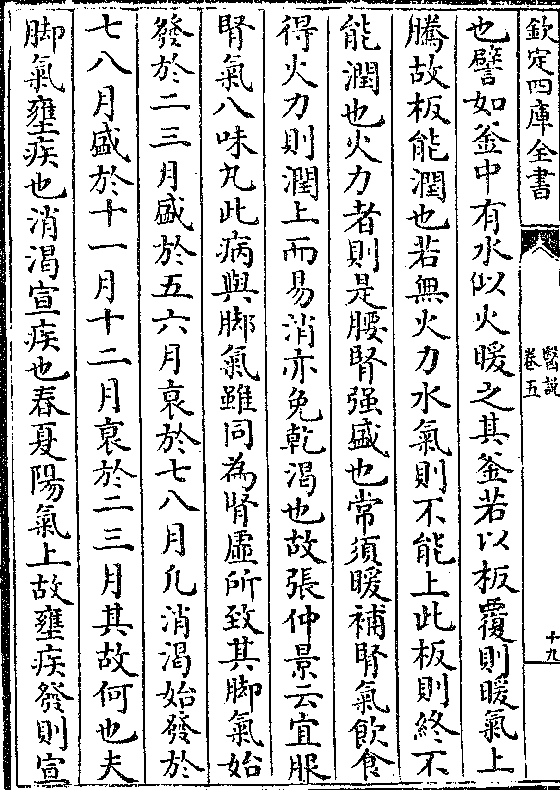 欽定四庫全書
醫説
卷五
十九
也譬如釜中有水似火暖之其釜若以板覆則暖氣上
騰故板能潤也若無火力水氣則不能上此板則終不
能潤也火力者則是腰腎强盛也常須暖補腎氣飲食
得火力則潤上而易消亦免乾渴也故張仲景云宜服
腎氣八味丸此病與脚氣雖同為腎虚所致其脚氣始
發於二三月盛於五六月衰於七八月凡消渴始發於
七八月盛於十一月十二月衰於二三月其故何也夫
脚氣壅疾也消渴宣疾也春夏陽氣上故壅疾發則宣